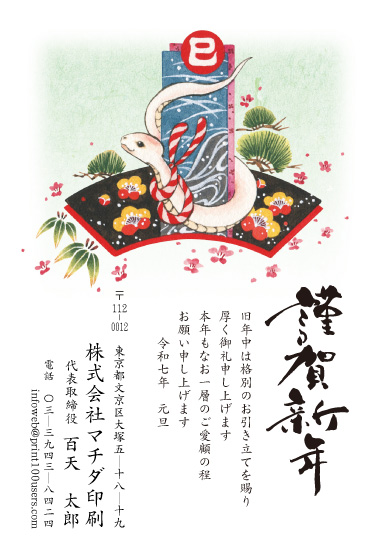 巳
謹賀新年
旧年中は格別のお引き立てを賜り
厚く御礼申し上げます
本年もなお一層のご愛顧の程
お願い申し上げます
令和七年 元旦
〒112-0012
東京都文京区大塚五-十八-十九
株式会社マチダ印刷
代表取締役 百天 太郎
電話 〇三-三九四三-八四二四
infoweb@print100users.com